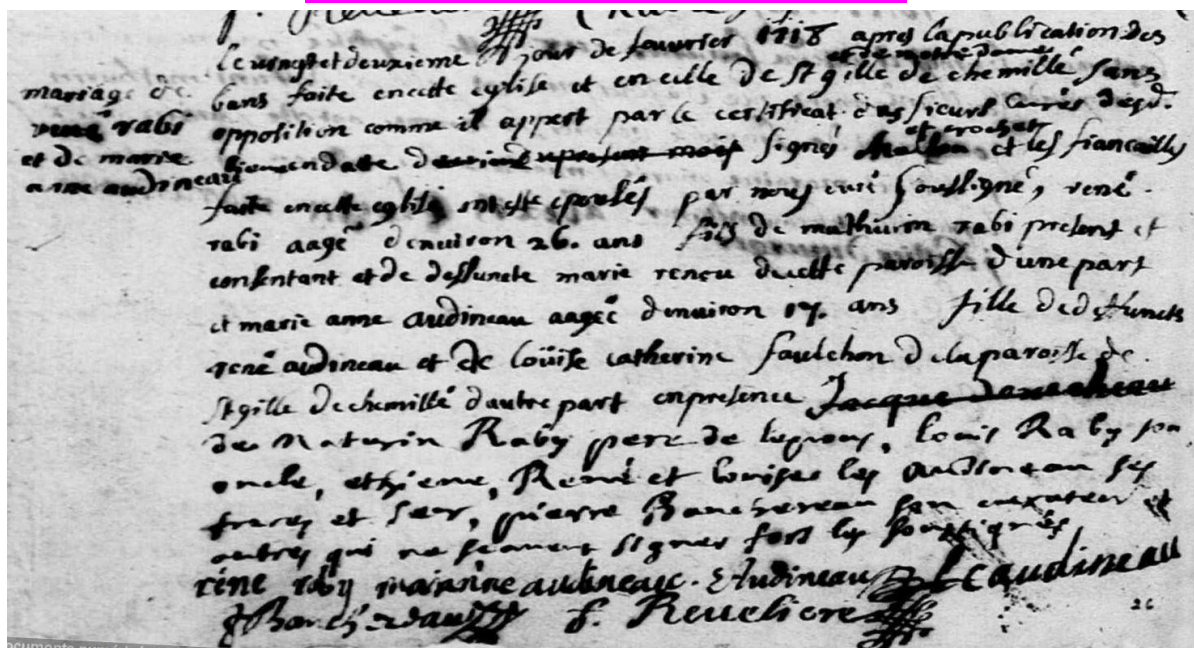 le vingt et deuxieme jour de feuvrier 1718 apres la publication des
et de nostre dame
bans faite en cette eglise et en celle de St gille de chemillé, sans
mariage de
rené rabi
et de marie
anne audineau
opposition comme il appert par le certificat des sieurs curés desd.
et crochet
lieux en date signés et les fiancailles
faite en cette eglise ont esté epousés par nous curé soussigné, rené
rabi aagé d'environ 26. ans fils de mathurin rabi present et
consentant et de deffuncte marie rençu de cette paroisse d'une part
et marie anne audineau aagée d'environ 17. ans fille de deffuncts
rené audineau et de loüise catherine faulchon de la paroisse de
St gille de chemillé d'autre part en presence Jacque
de Maturin Raby pere de lepous, louis Raby son
oncle, ethiene, René et louises les Audineau ses
freres et seur, pierre Banchereau son curateur et
autres qui ne scauent signer fors les soussignés
rene raby marianne audineau. E Audineau L audineau
P Banchereau f. Reueliere
26